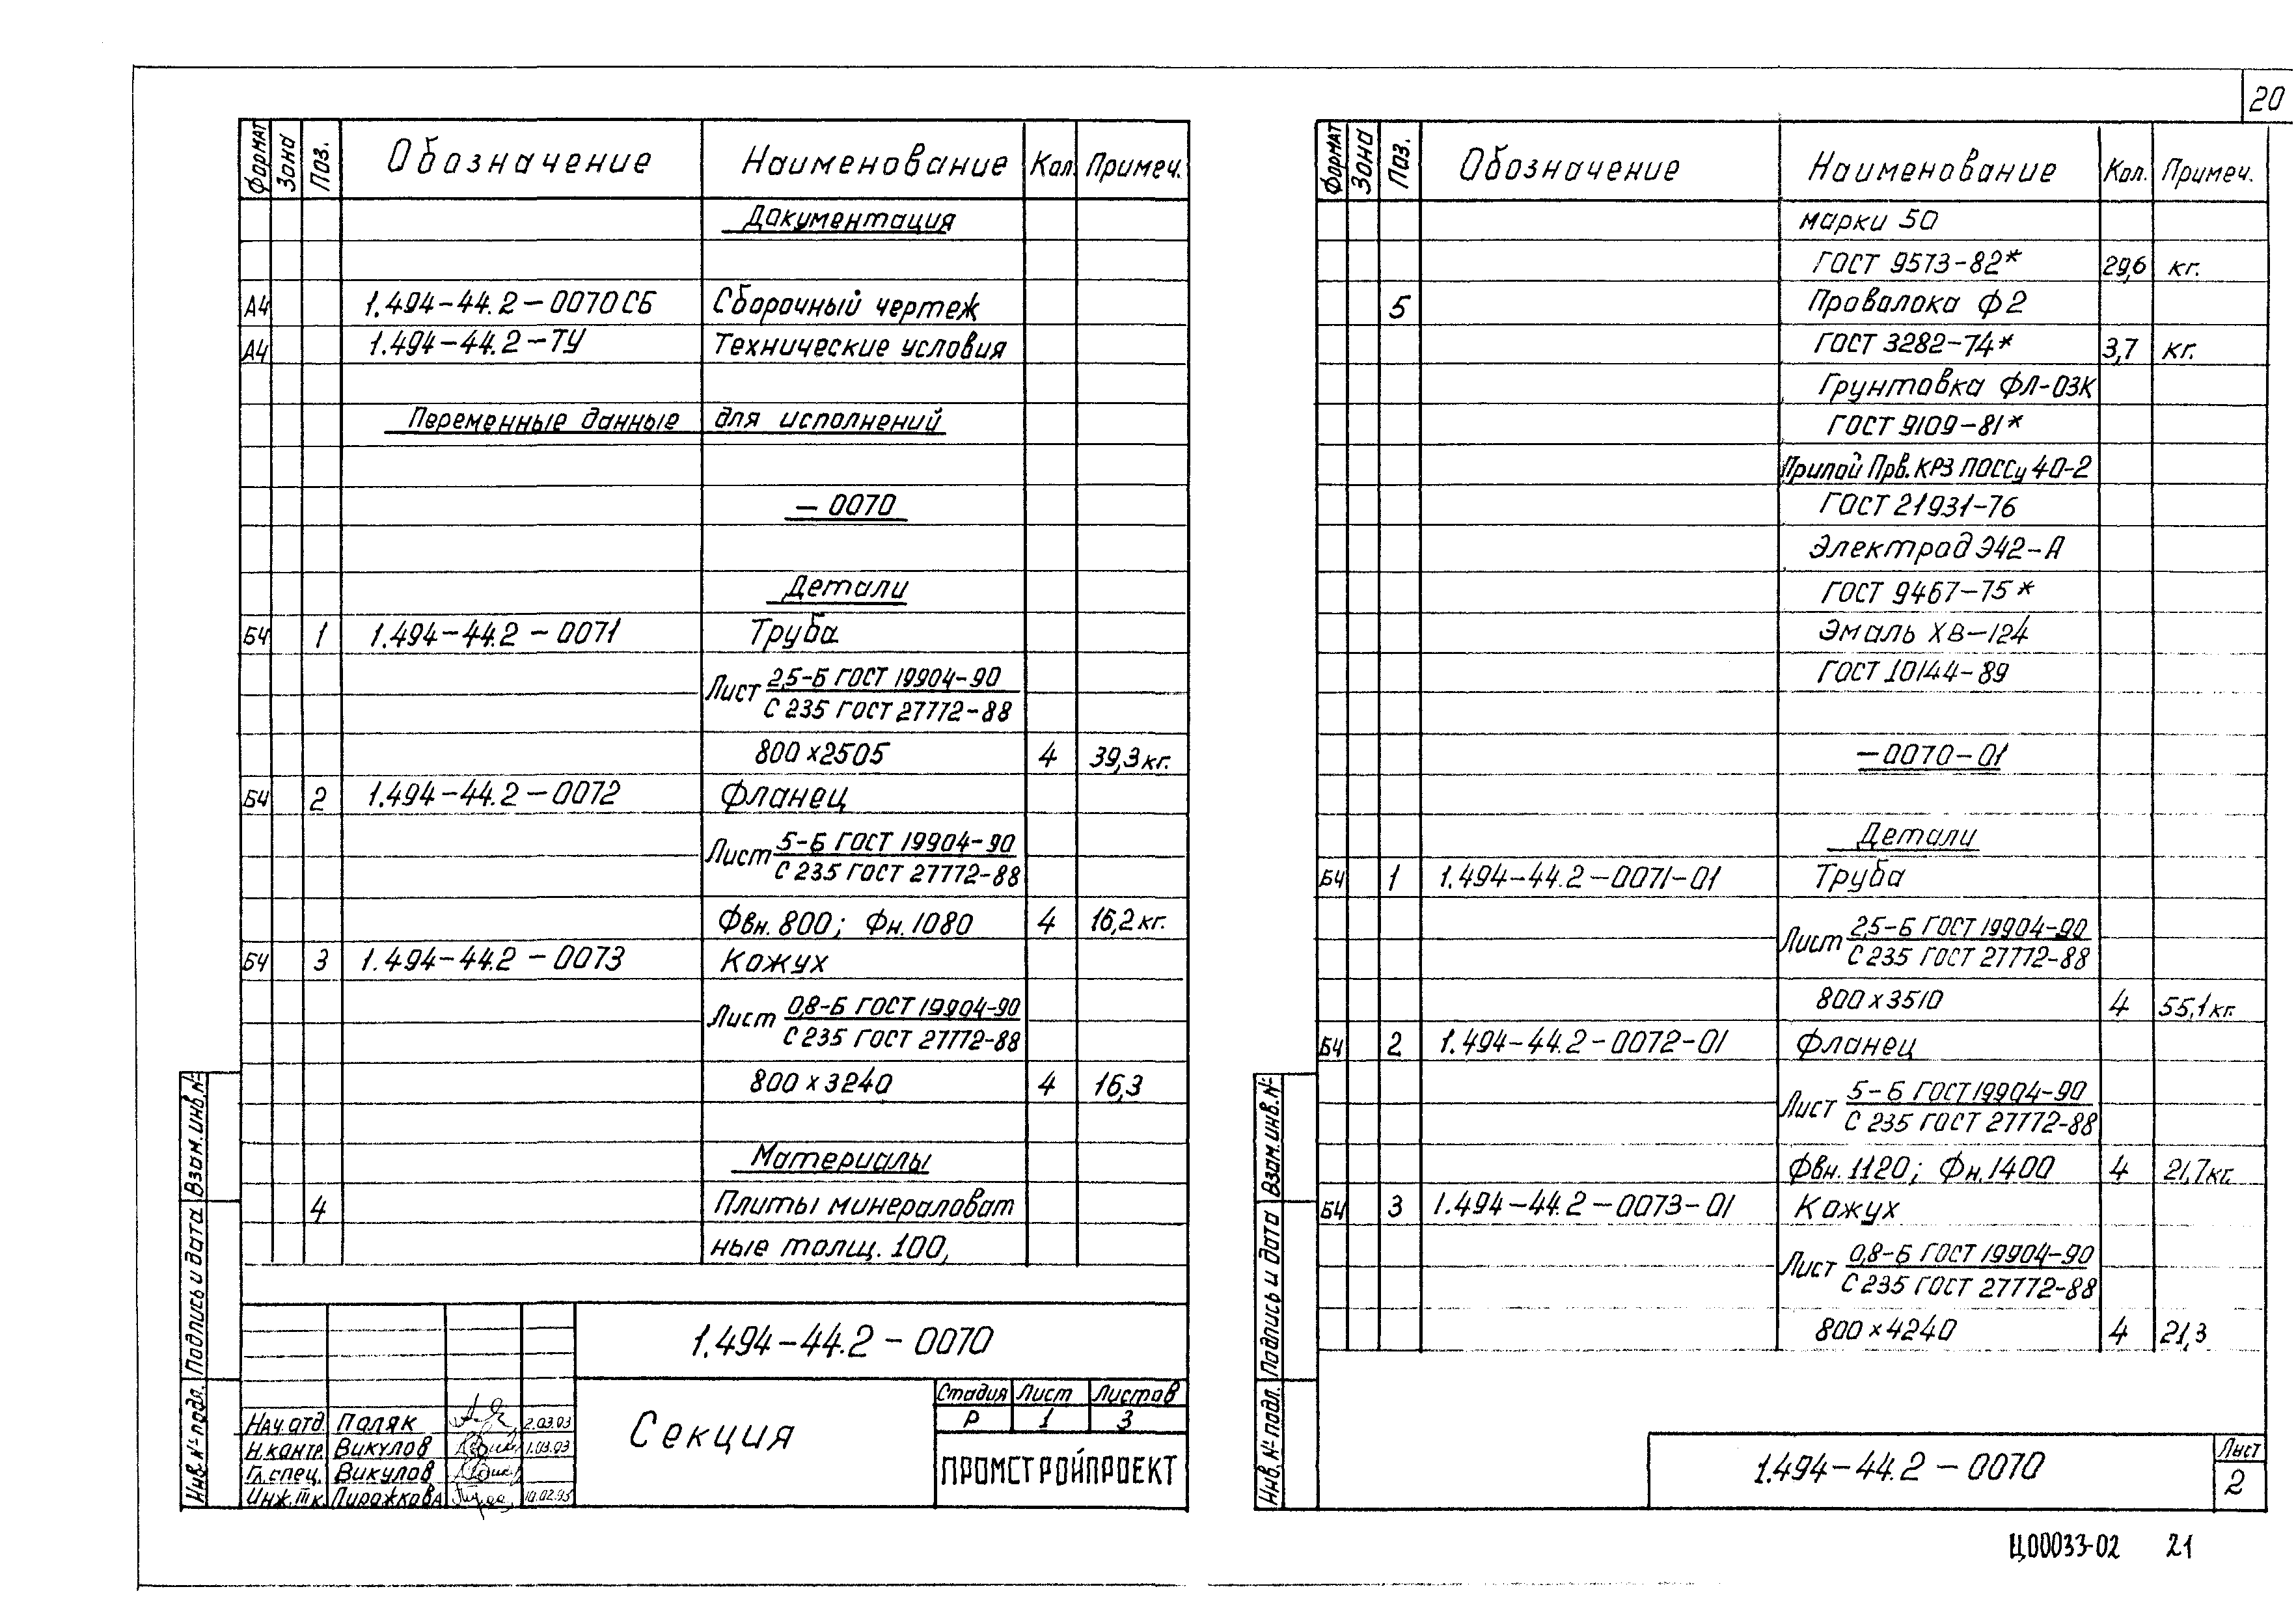 20
Формат Зона Поз. Обозначение Наименование Кол. Примеч.
Документация
А4 1.494-44.2-0070СБ Сборочный чертеж
А4 1.494-44.2-ТУ Технические условия
Переменные данные для исполнений
- 0070
Детали
БЧ 1 1.494-44.2-0071 Труба
Лист 2,5-Б ГОСТ 19904-90
С 235 ГОСТ 27772-88
800х2505 4 39,3 кг.
БЧ 2 1.494-44.2-0072 Фланец
Лист 5-Б ГОСТ 19904-90
С 235 ГОСТ 27772-88
Фвн. 800; Фн. 1080 4 16,2 кг.
БЧ 3 1.494-44.2-0073 Кожух
Лист 0,8-Б ГОСТ 19904-90
С 235 ГОСТ 27772-88
800 х 3240 4 16,3
Материалы
4 Плиты минераловат
ные толщ. 100,
1.494-44.2-0070
Секция
Стадия Лист Листов
Р 1 3
ПРОМСТРОЙПРОЕКТ
Нач.отд. Поляк 2.03.93
Н.контр. Викулов 1.03.93
Гл.спец. Викулов
Инж.IIIк. Пирожкова
Взам.инв.№
Подпись и дата
Инв.№ подл.
Формат Зона Поз. Обозначение Наименование Кол. Примеч.
марки 50
ГОСТ 9573-82* 29,6 кг.
5 Проволока Ф2
ГОСТ 3282-74* 3,7 кг.
Грунтовка ФЛ-03К
ГОСТ 9109-81*
Припой Прв. КР3 ПОССу 40-2
ГОСТ 21931-76
Электрод Э42-А
ГОСТ 9467-75*
Эмаль ХВ-124
ГОСТ 10144-89
-0070-01
Детали
БЧ 1 1.494-44.2-0071-01 Труба
Лист 2,5-Б ГОСТ 19904-90
С 235 ГОСТ 27772-88
800х3510 4 55,1 кг.
БЧ 2 1.494-44.2-0072-01 Фланец
Лист 5-Б ГОСТ 19904-90
С 235 ГОСТ 27772-88
Фвн. 1120; Фн. 1400 4 21,7 кг.
БЧ 3 1.494-44.2-0073-01 Кожух
Лист 0,8-Б ГОСТ 19904-90
С 235 ГОСТ 27772-88
800 х 4240 4 21,3
1.494-44.2-0070
Лист
2
Взам.инв.№
Подпись и дата
Инв.№ подл.
Ц00033-02 21